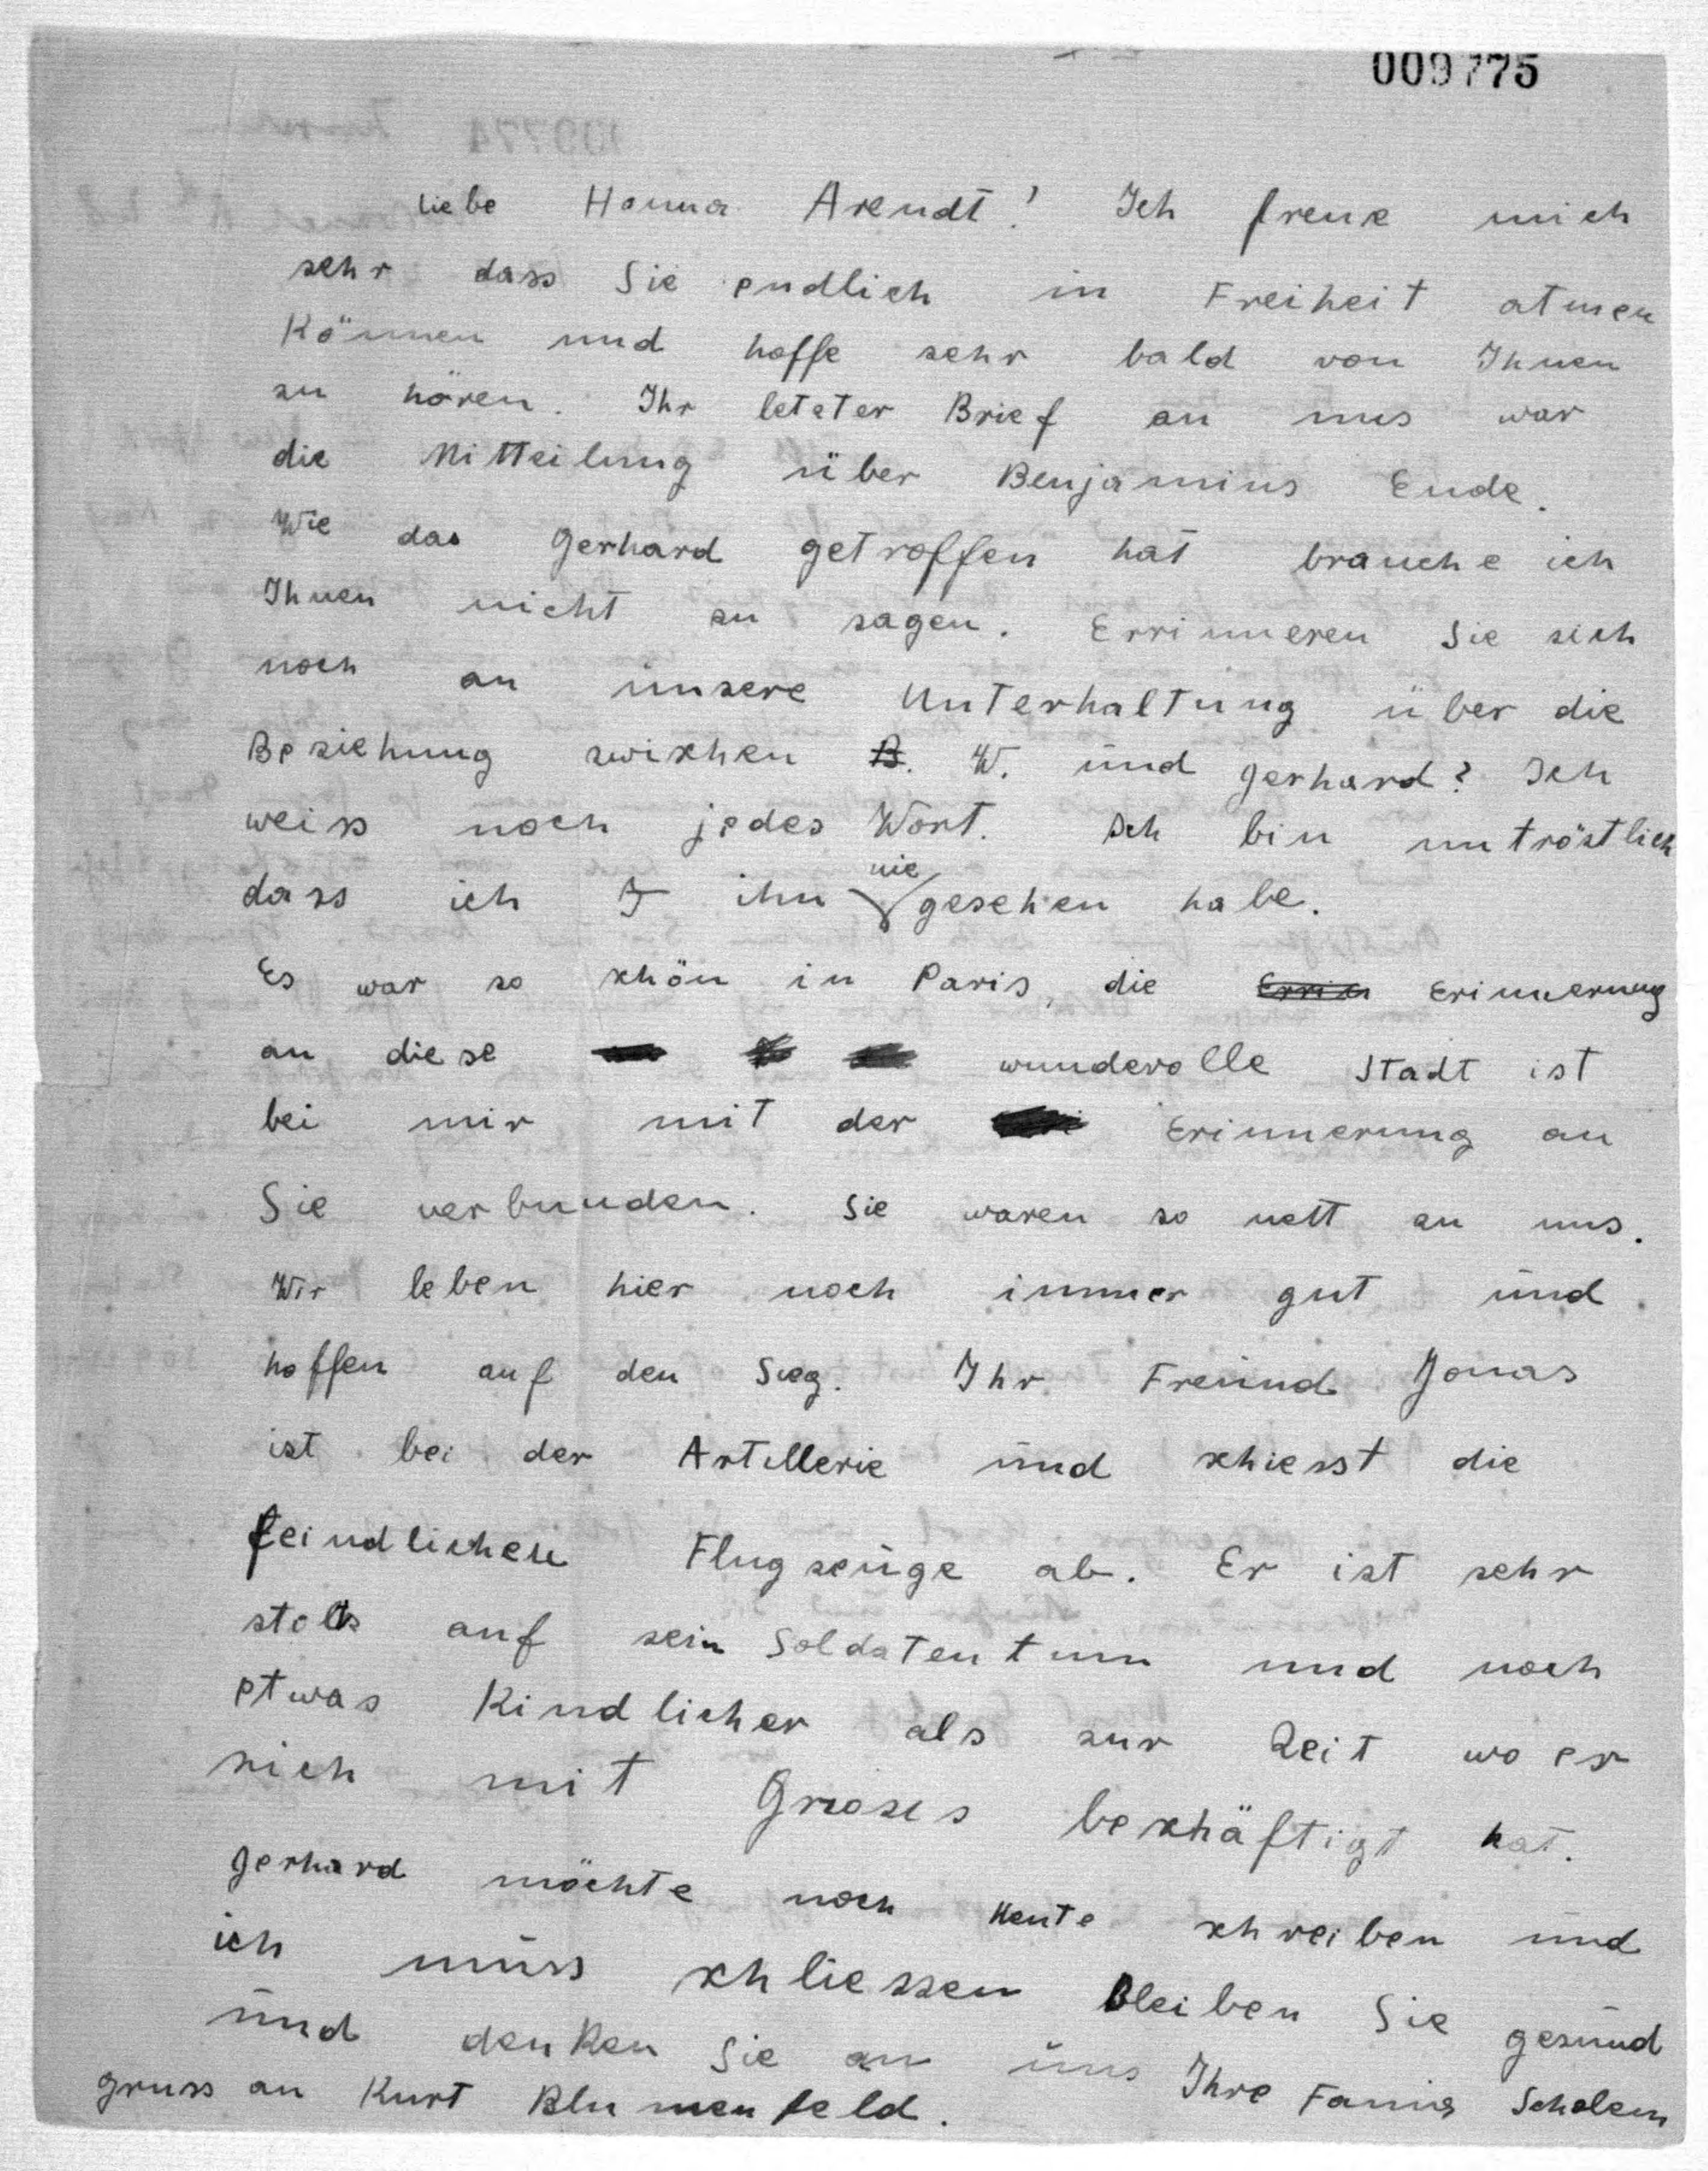 009775
liebe Hanna Arendt! Ich freue mich
sehr dass Sie endlich in Freiheit atmen
können und hoffe sehr bald von Ihnen
zu hören. Ihr letzter Brief an uns war
die Mitteilung über Benjamins Ende.
Wie das Gerhard getroffen hat brauche ich
Ihnen nicht zu sagen. Errinneren Sie sich
noch an unsere Unterhaltung über die
Beziehung zwischen B. W. und Gerhard? Ich
weiss noch jedes Wort. Ich bin untröstlich
dass ich ihn nie gesehen habe.
Es war so schön in Paris, die Errin Erinnerung
an diese wundervolle Stadt ist
bei mir mit der Erinnerung an
Sie verbunden. Sie waren so nett zu uns.
Wir leben hier noch immer gut und
hoffen auf den Sieg. Ihr Freund Jonas
ist bei der Artillerie und schiesst die
feindlichen Flugzeuge ab. Er ist sehr
stolz auf sein Soldatentum und noch
etwas kindlicher als zur Zeit wo er
sich mit Gnosis beschäftigt hat.
Gerhard möchte noch heute schreiben und
ich muss schliessen Bleiben Sie gesund
und denken Sie an uns Ihre Fania Scholem
gruss an Kurt Blumenfeld.